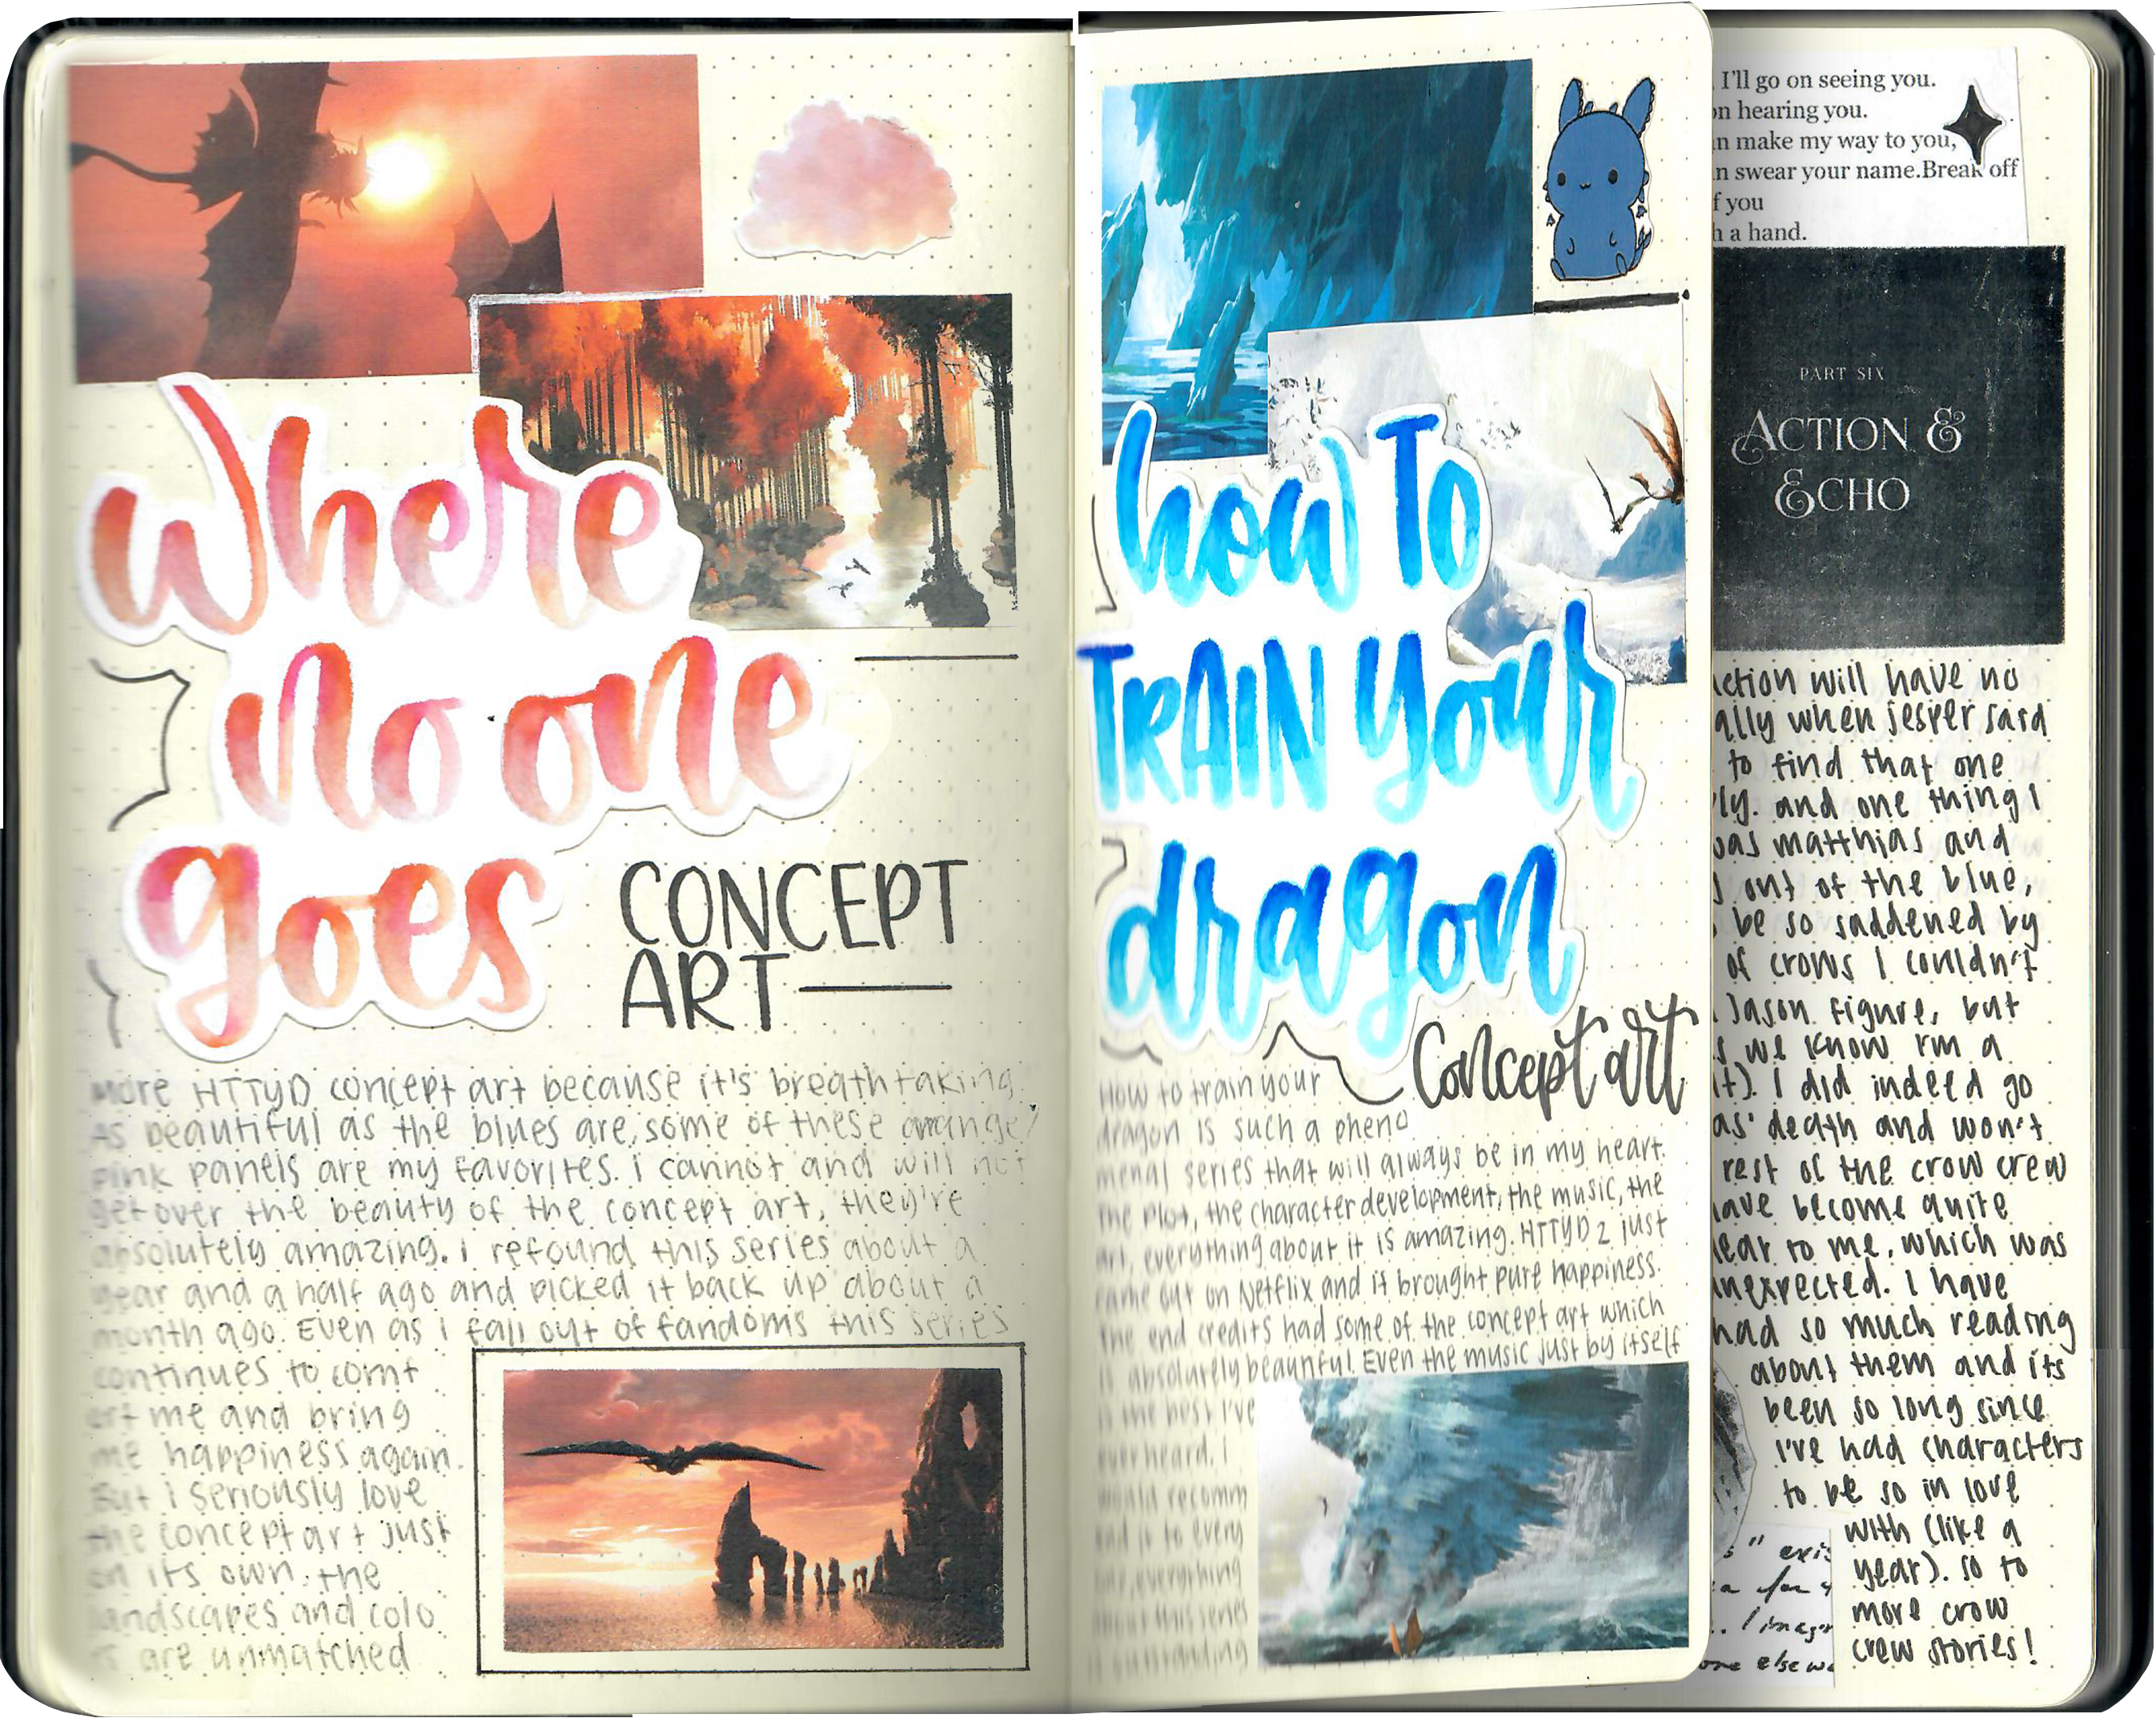 where
no one
goes
CONCEPT
ART
more HTTYD concept art because it's breathtaking.
As beautiful as the blues are, some of these orange/
pink panels are my favorites. i cannot and will not
get over the beauty of the concept art, they're
absolutely amazing. i refound this series about a
year and a half ago and picked it back up about a
month ago. Even as i fall out of fandoms this series
continues to comf
ort me and bring
me happiness again.
But i seriously love
the concept art just
on its own. the
landscapes and colo
rs are unmatched
how To
TRAIN your
dragon
Concept art
How to train your
dragon is such a pheno
menal series that will always be in my heart.
The plot, the character development, the music, the
art, everything about it is amazing. HTTYD 2 just
came out on Netflix and it brought pure happiness.
The end credits had some of the concept art which
is absolutely beautiful. Even the music just by itself
is the best i've
ever heard. i
would recomm
end it to every
one, everything
about this series
is outstanding
I'll go on seeing you.
on hearing you.
n make my way to you,
n swear your name.Break off
f you
h a hand.
PART SIX
ACTION &
ECHO
action will have no
ally when jesper said
to find that one
ly. and one thing I
was matthias and
s out of the blue,
be so saddened by
of crows I couldn't
Jason figure, but
s we know i'm a
it). I did indeed go
as' death and won't
rest of the crow crew
have become quite
dear to me, which was
unexpected. I have
had so much reading
about them and its
been so long since
i've had characters
to be so in love
with (like a
year). so to
more crow
crew stories!
s" exis
a for
. I imag
one else w